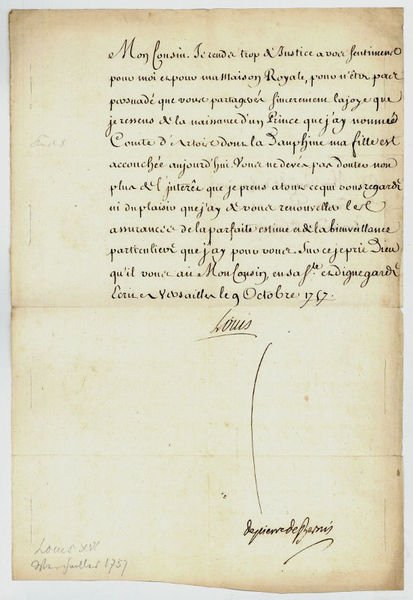 Mon Cousin. Je rends trop de Justice a vos sentimens
pour moi et pour ma Maison Royale, pour n'être pas
persuadé que vous partagerés sincerement la joye que
je ressens de la naissance d'un Prince que j'ay nommé
Comte d'Artois dont la Dauphine ma fille est
accouchée aujourd'hui. Vous ne devés pas douter non
plus de l'intérêt que je prens a tout ce qui vous regarde
ni du plaisir que j'ay de vous renouveller les
assurances de la parfaite estime et de la bienveillance
particuliere que j'ay pour vous. Sur ce je prie Dieu
qu'il vous ait Mon Cousin, en sa ste. et digne garde
Ecrit a Versailles le 9 Octobre 1757.
Louis
de pierre de Bernis
Louis XV
Versailles 1757